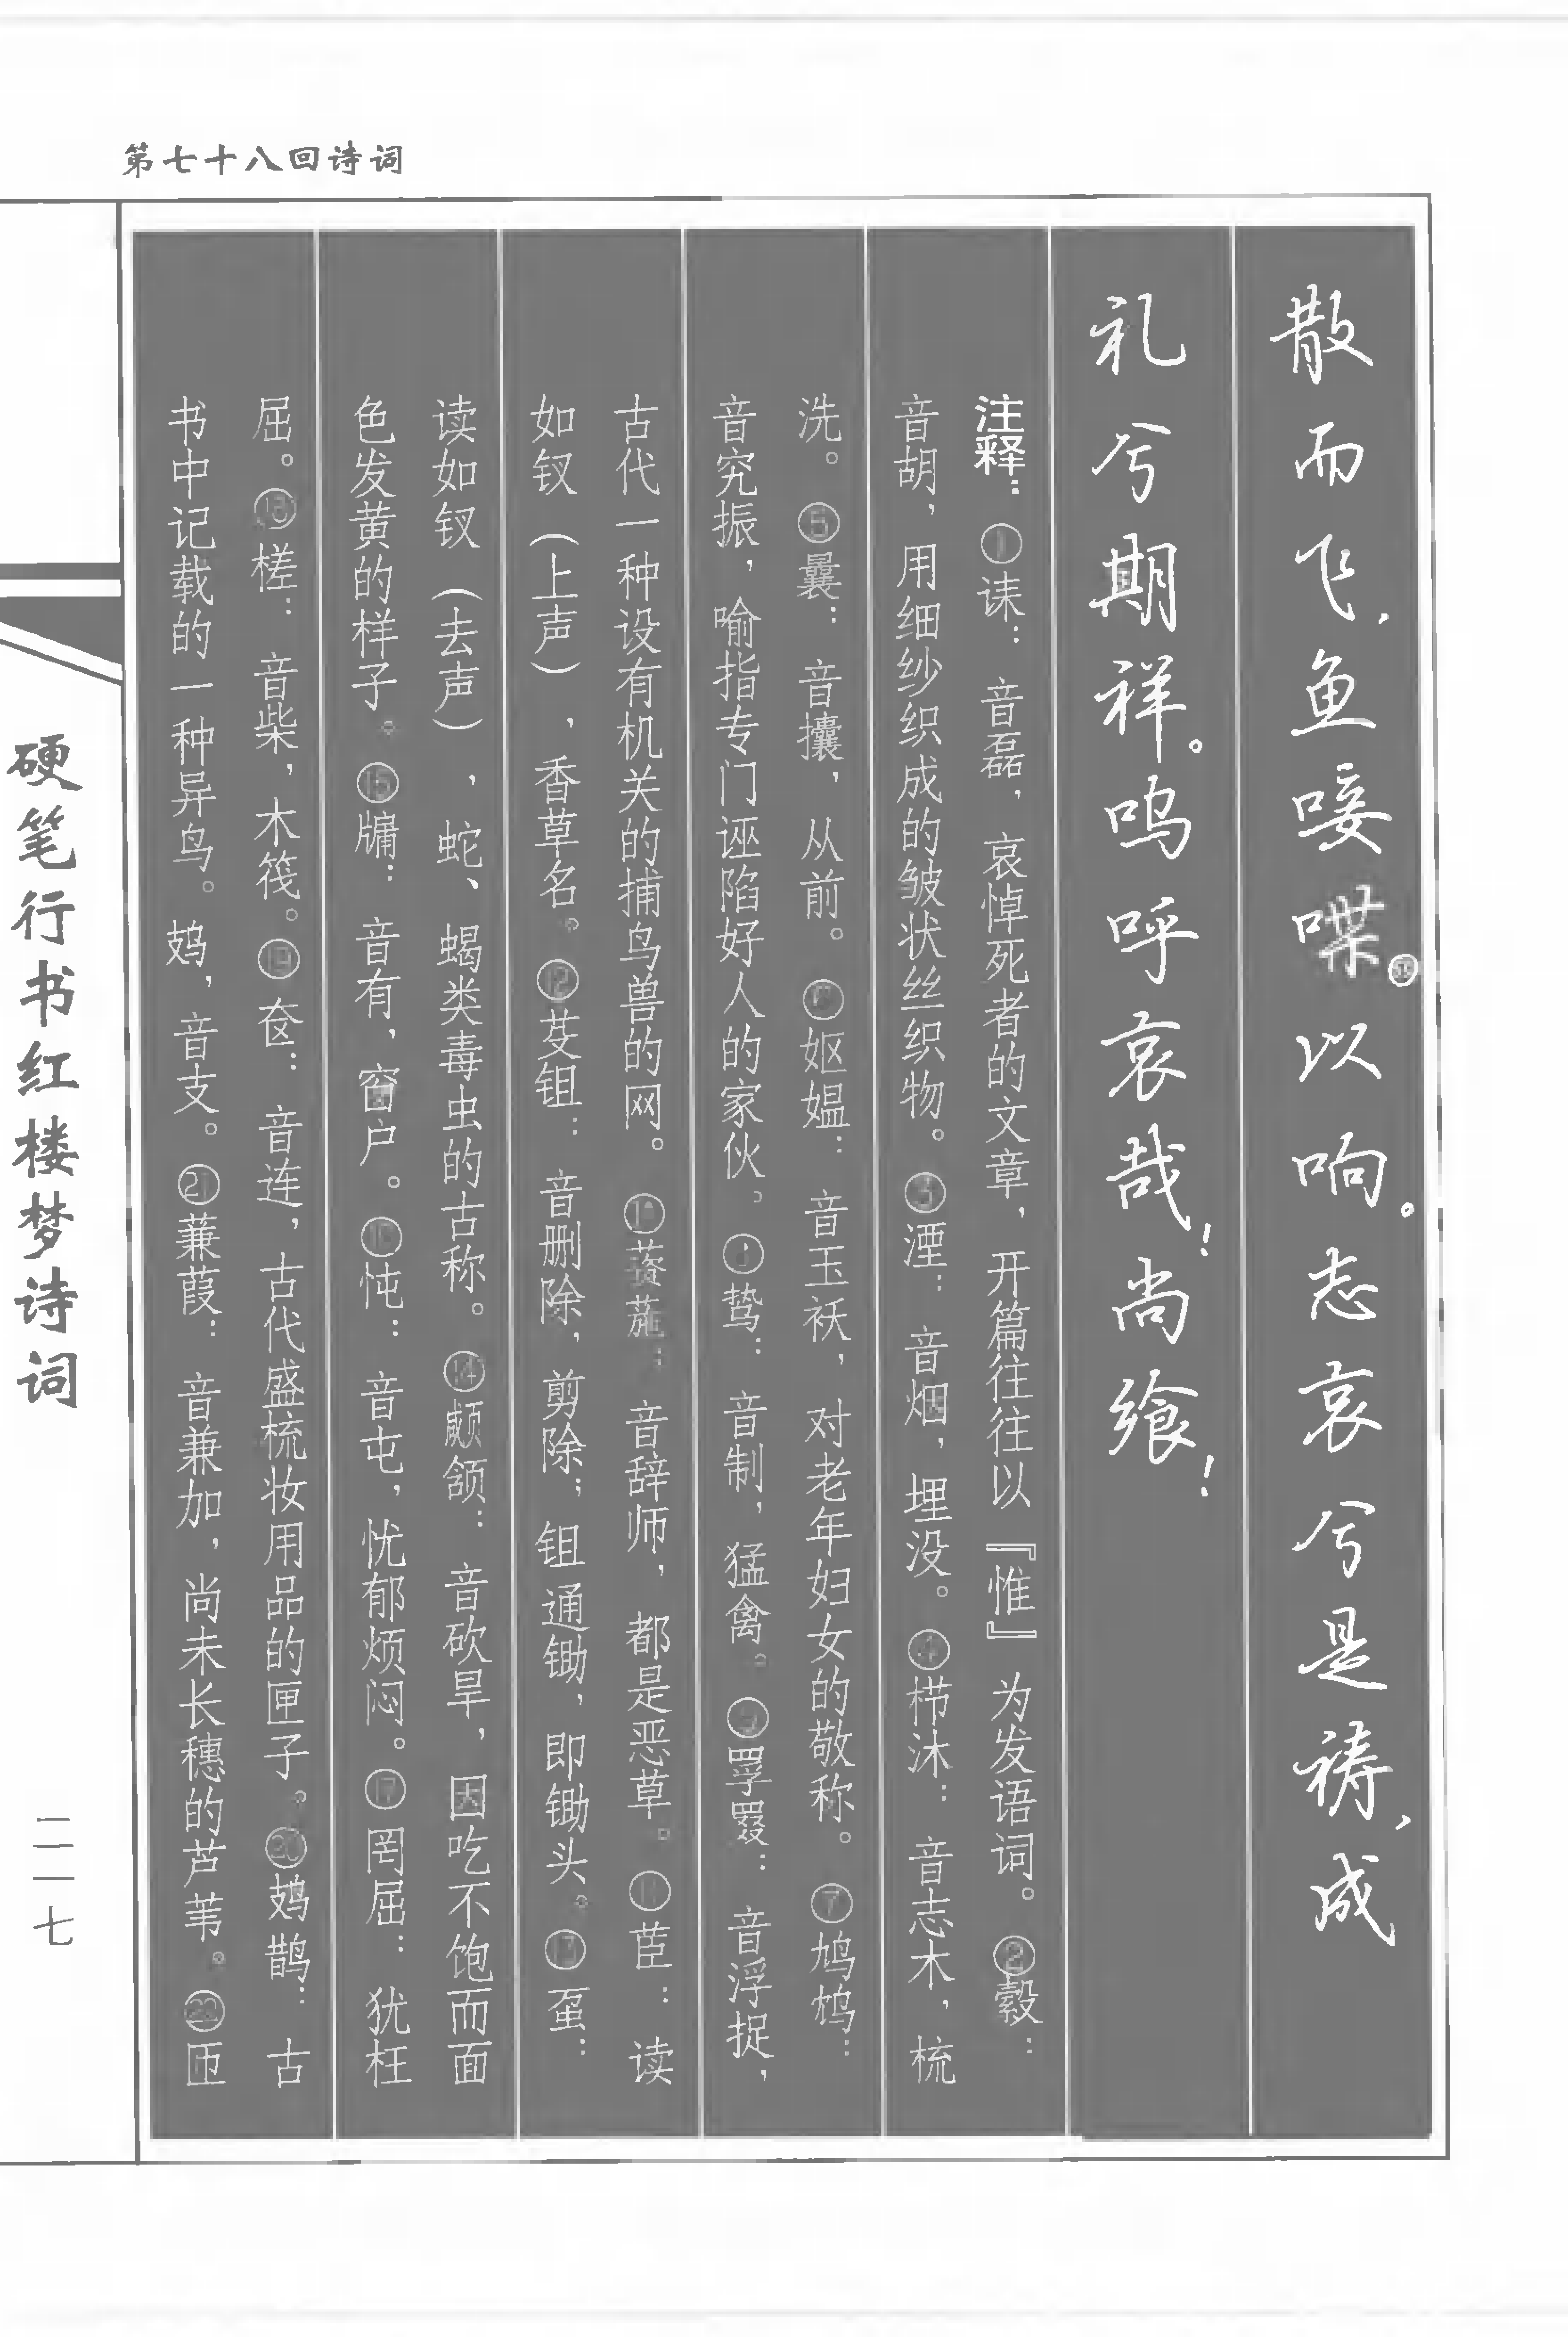 第七十八回诗词
散而飞，鱼唼喋。㊿以响。志哀兮是祷，成
礼兮期祥。呜呼哀哉！尚飨！
注释：①诔：音磊，哀悼死者的文章，开篇往往以『惟』为发语词。②縠：
音胡，用细纱织成的皱状丝织物。③湮：音烟，埋没。④栉沐：音志木，梳
洗。⑤曩：音攮，从前。⑥妪媪：音玉袄，对老年妇女的敬称。⑦鸠鸩：
音究振，喻指专门诬陷好人的家伙。⑧鸷：音制，猛禽。⑨罦罬：音浮捉，
古代一种设有机关的捕鸟兽的网。⑩薋葹：音辞师，都是恶草。⑪茝：读
如钗（上声），香草名。⑫芟鉏：音删除，剪除；鉏通锄，即锄头。⑬虿：
读如钗（去声），蛇、蝎类毒虫的古称。⑭顑颔：音砍旱，因吃不饱而面
色发黄的样子。⑮牖：音有，窗户。⑯忳：音屯，忧郁烦闷。⑰罔屈：犹枉
屈。⑱槎：音柴，木筏。⑲奁：音连，古代盛梳妆用品的匣子。⑳鳷鹊：古
书中记载的一种异鸟。鳷，音支。㉑蒹葭：音兼加，尚未长穗的芦苇。㉒匝
硬笔行书红楼梦诗词
二一七